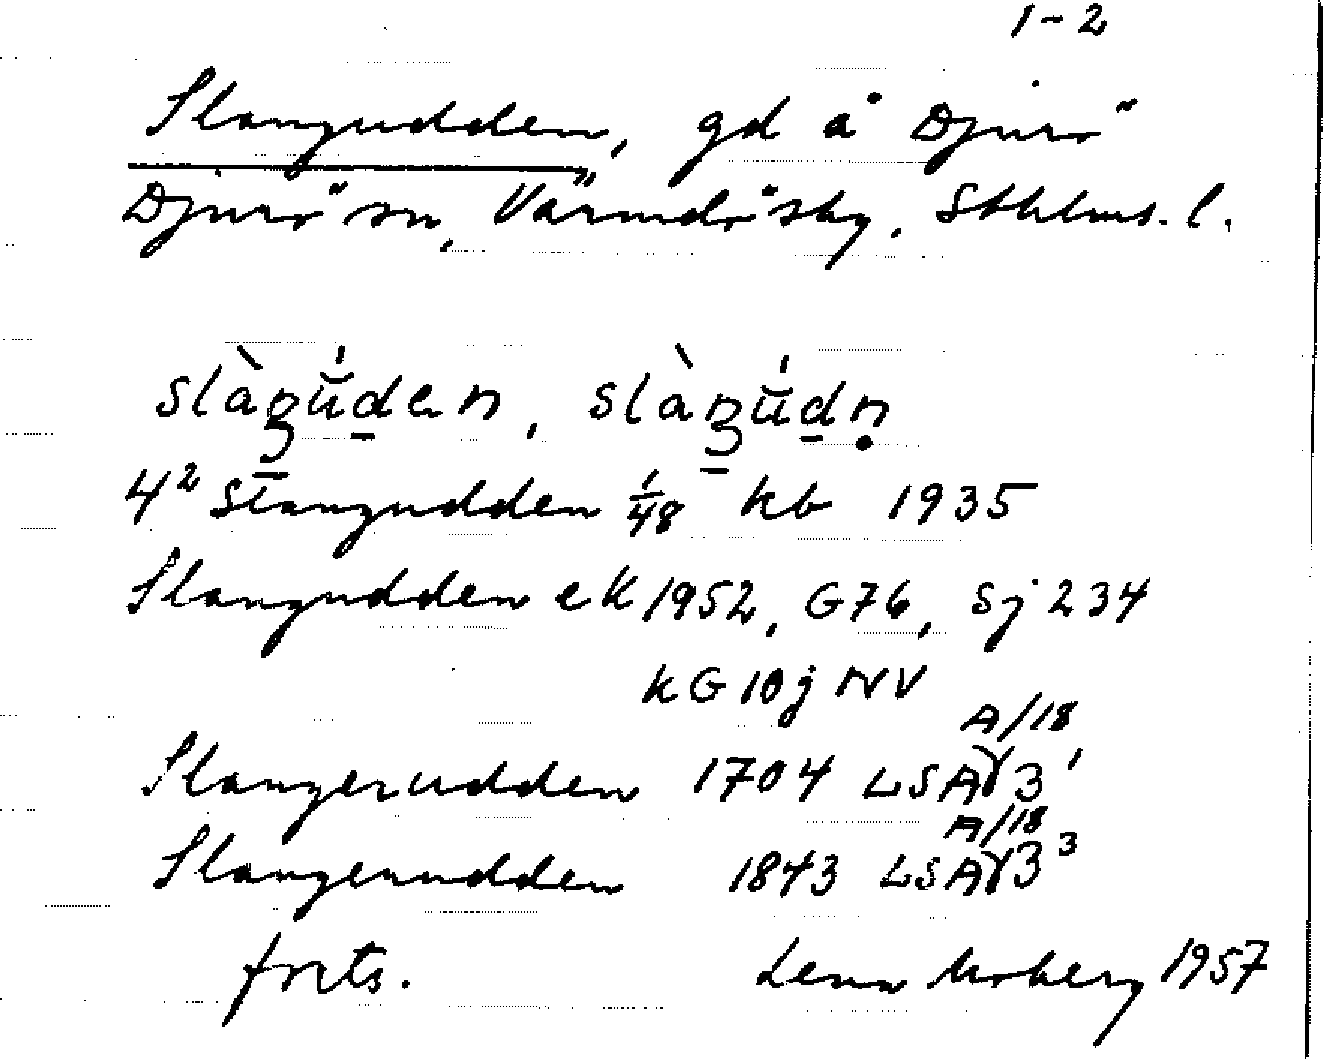 1-2
Slangudden, gd å Djurö
Djurö sn, Värmdö sky, Sthlms. l.
4² Slangudden 1/48 kb 1935
Slangudden ek 1952, G76, Sj 234
kG 10j NV
A/18
Slangerudden 1704 LSA 3¹
A/18
Slangenudden 1843 LSA 3³
forts. Lena Moberg 1957